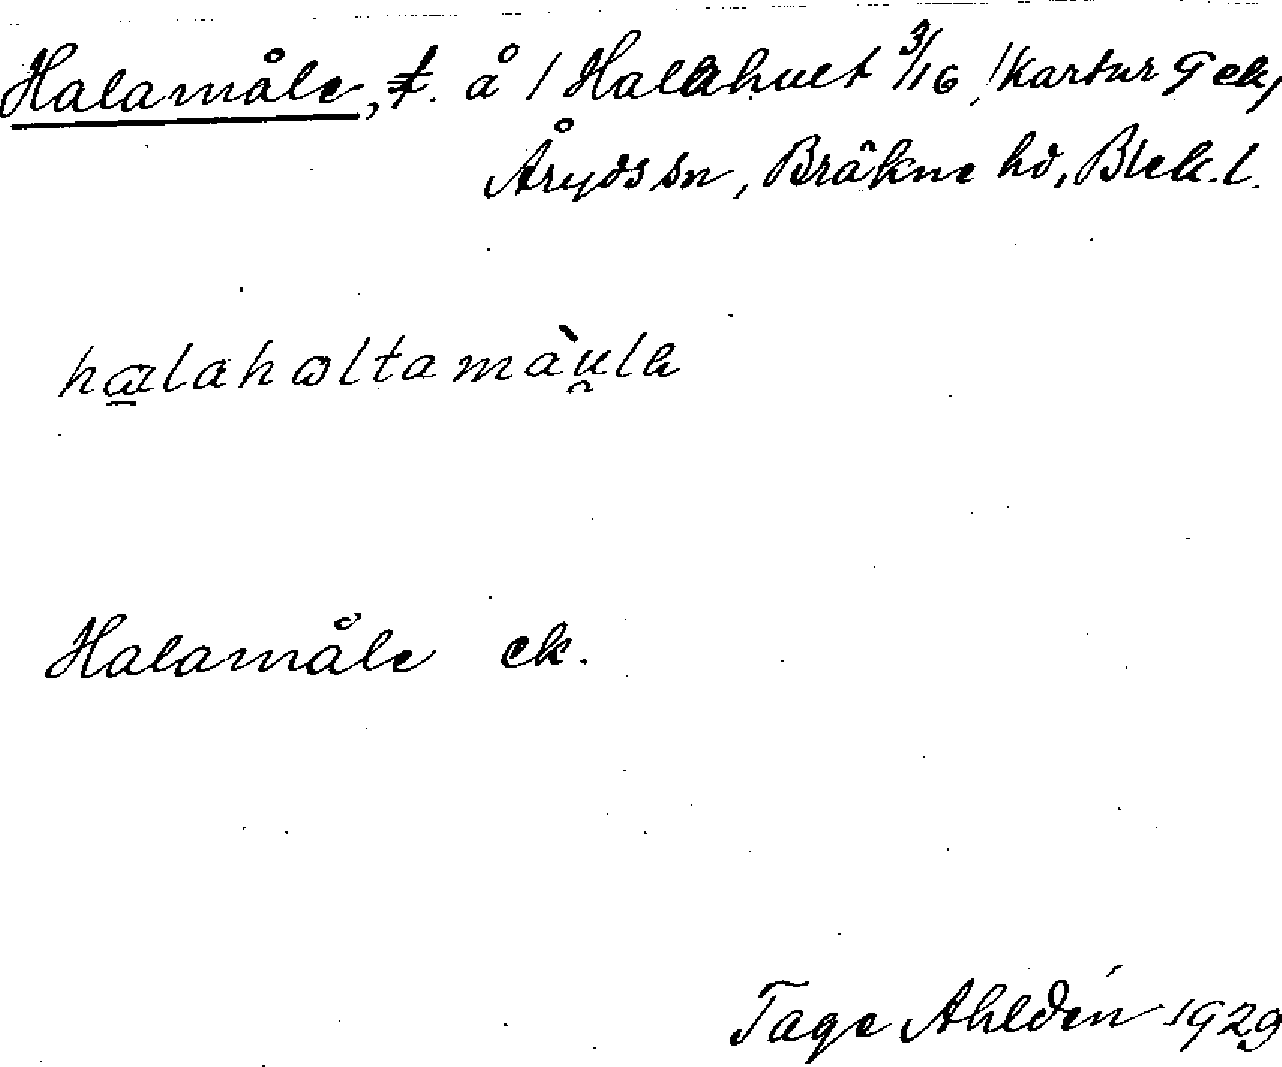 Halamåle, t. å / Halahult 3/16, /Kartur G ek/
Åryds sn, Bräkne hd, Blek. l.
halahaltamàula
Halamåle ek.
Tage Ahldén 1929